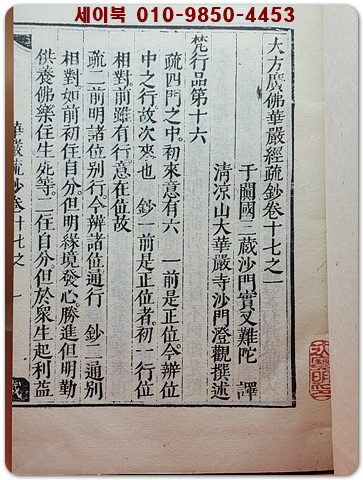 세이북 010-9850-4453
大方廣佛華嚴經疏鈔卷十七之一
于闐國三藏沙門實叉難陀 譯
淸凉山大華嚴寺沙門澄觀撰述
梵行品第十六
疏四門之中。初來意有六 一前是正位。今辨位
中之行故次來也 鈔一前是正位者。初一行位
相對。前雖有行。意在位故
疏二前明諸位別行。今辨諸位通行 鈔二通別
相對。如前初住自分。但明緣境發心。勝進但明勤
供養佛。樂住生死等。二住自分。但於衆生起利益
華嚴疏鈔卷十七之一